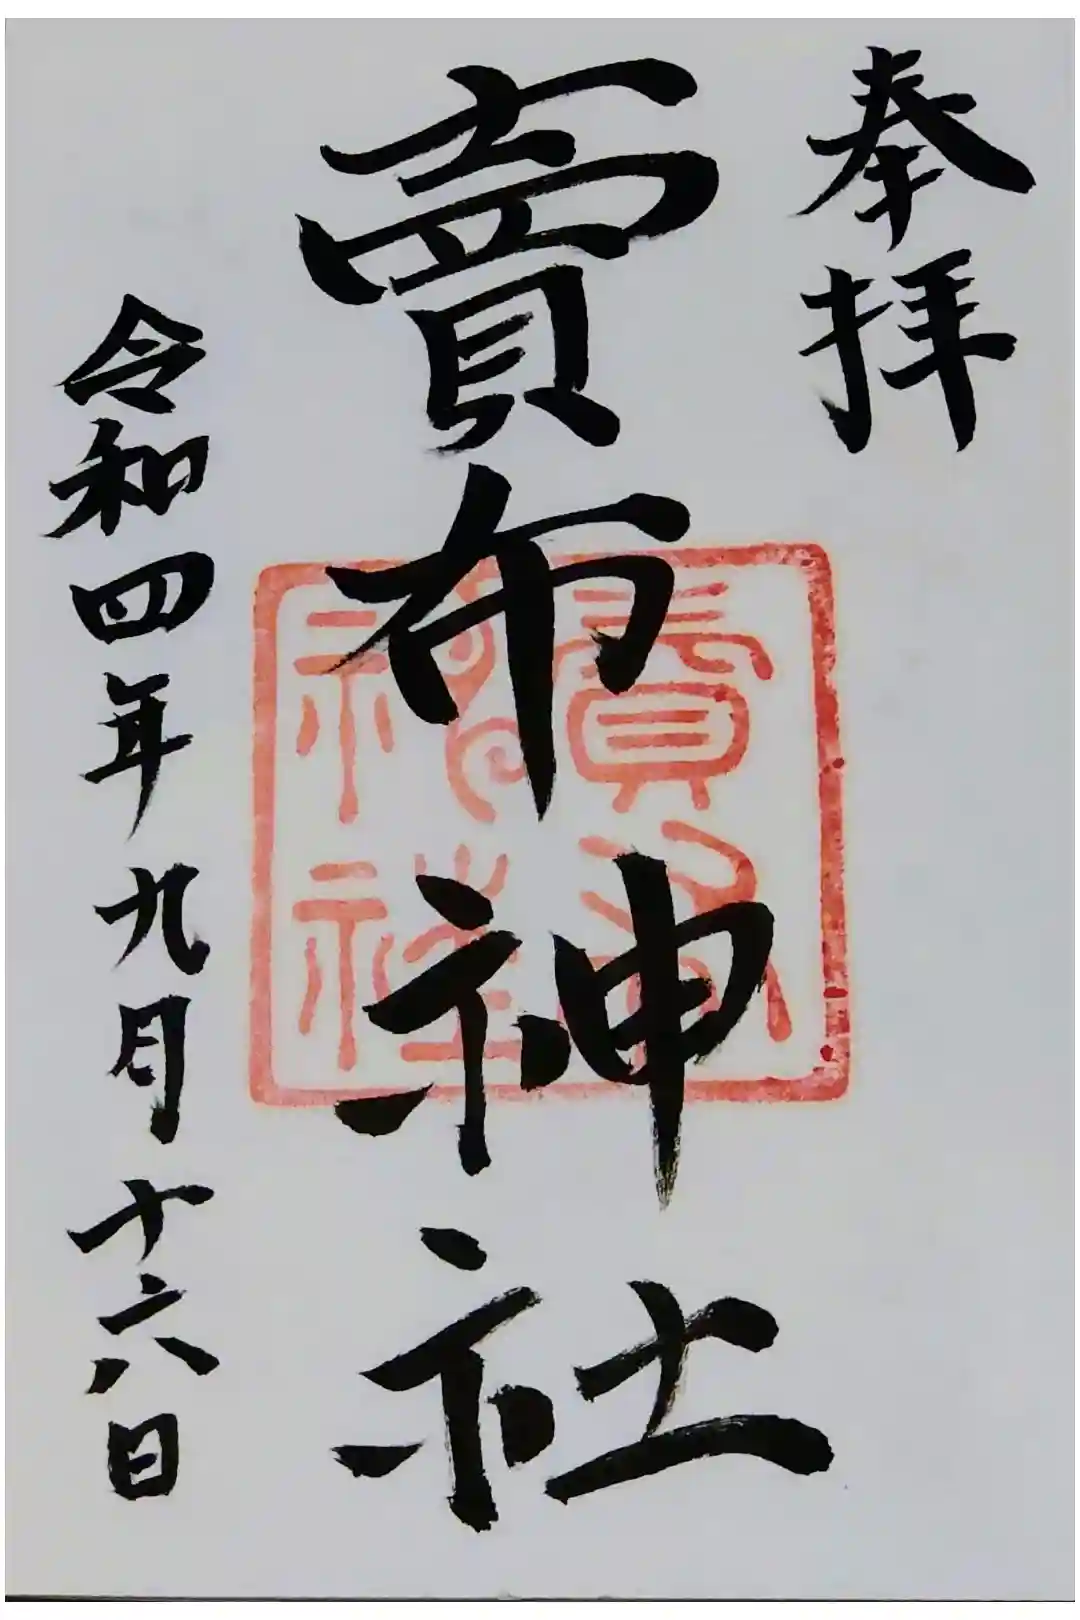 奉拝
賣布神社
賣布
神社
令和四年九月十六日